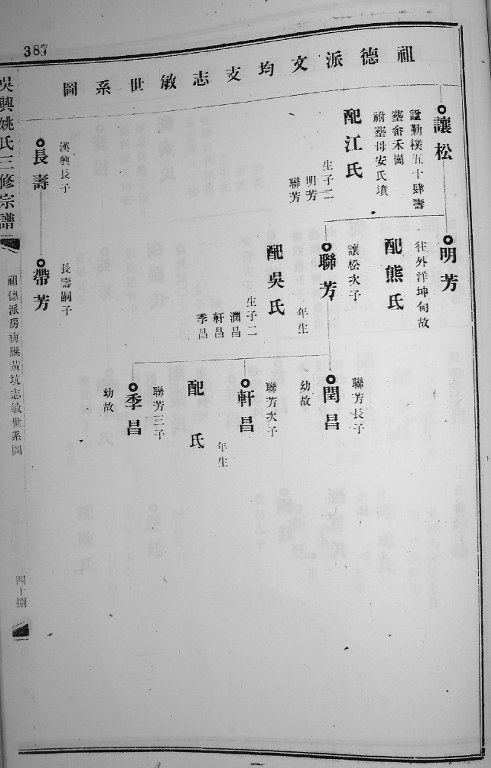 387
祖德派文均支志敏世系圖
讓松
勤樸五十肆壽
葬畲禾崗
祔葬母安氏墳
配江氏
生子二
明芳
聯芳
漢興長子
長壽
明芳
往外洋坤甸故
配熊氏
聯芳
讓松次子
年生
配吳氏
生子二
潤昌
軒昌
季昌
長壽嗣子
帶芳
聯芳長子
閏昌
幼故
聯芳次子
軒昌
年生
配 氏
聯芳三子
季昌
幼故
吳興姚氏三修宗譜
祖德派房梅縣黃坑志敏世系圖
四十捌